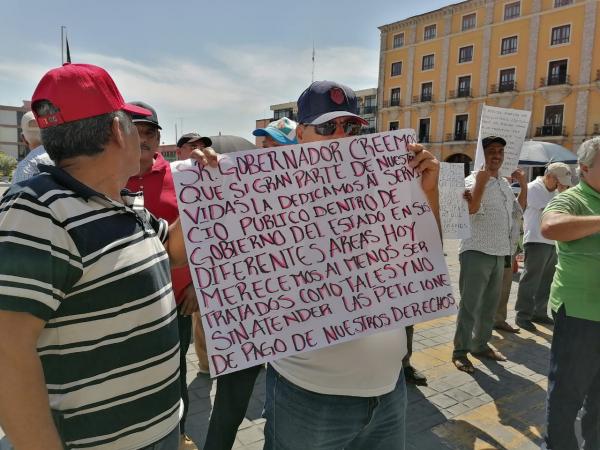 SR. GOBERNADOR CREEMOS
QUE SI GRAN PARTE DE NUESTRAS
VIDAS LA DEDICAMOS AL SERVI
CIO PUBLICO DENTRO DE
GOBIERNO DEL ESTADO EN SUS
DIFERENTES AREAS HOY
MERECEMOS AL MENOS SER
TRATADOS COMO TALES Y NO
SIN ATENDER LAS PETICIONE
DE PAGO DE NUESTROS DERECHOS